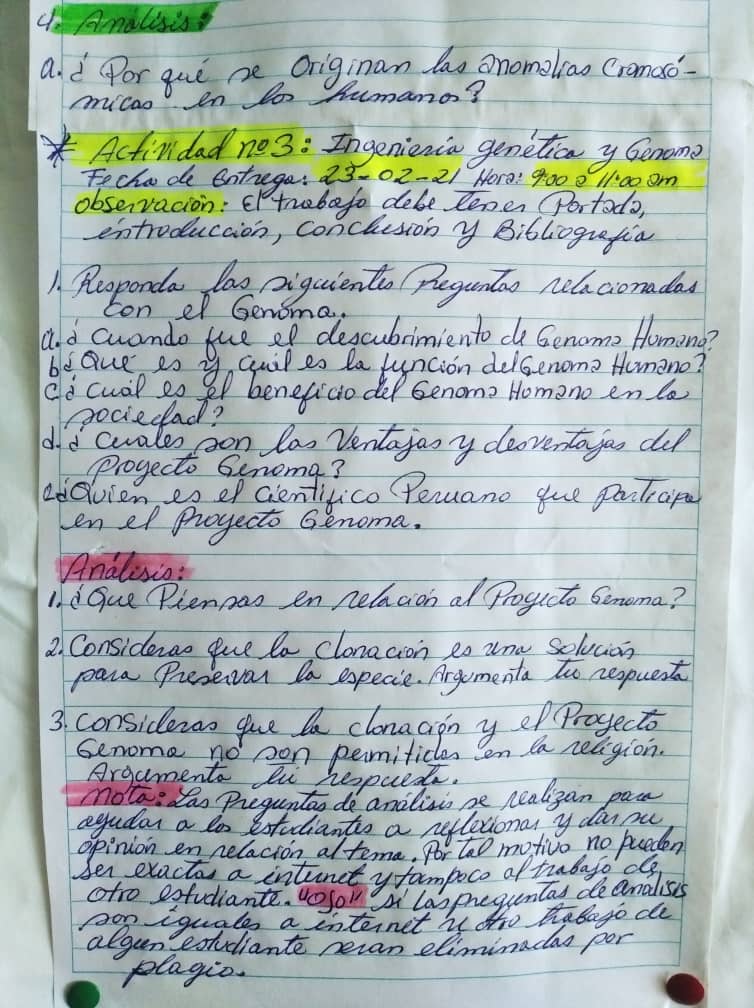 4. Análisis:
a. ¿Por qué se Originan las anomalías Cromosó-
micas en los humanos?
* Actividad nº3: Ingeniería genética y Genoma
Fecha de Entrega: 23-02-21 Hora: 9:00 a 11:00 am
observación: El trabajo debe tener Portada,
introducción, conclusión y Bibliografía
1. Responda las siguientes Preguntas relacionadas
con el Genoma.
a. ¿Cuando fue el descubrimiento de Genoma Humano?
b ¿Qué es y cuál es la función del Genoma Humano?
c ¿cuál es el beneficio del Genoma Homano en la
sociedad?
d. ¿cuales son las Ventajas y desventajas del
Proyecto Genoma?
e ¿Quien es el Científico Peruano que participa
en el Proyecto Genoma.
Análisis:
1. ¿Que Piensas en relación al Proyecto Genoma?
2. Consideras que la Clonación es una Solución
para Preservar la especie. Argumenta tu respuesta
3. consideras que la clonación y el Proyecto
Genoma no son permitidos en la religión.
Argumenta tu respuesta.
Nota: Las Preguntas de análisis se realizan para
ayudar a los estudiantes a reflexionar y dar su
opinión en relación al tema. Por tal motivo no pueden
ser exactas a internet y tampoco al trabajo de
otro estudiante. "OJO" si las preguntas de analisis
son iguales a internet u otro trabajo de
algun estudiante seran eliminadas por
plagio.